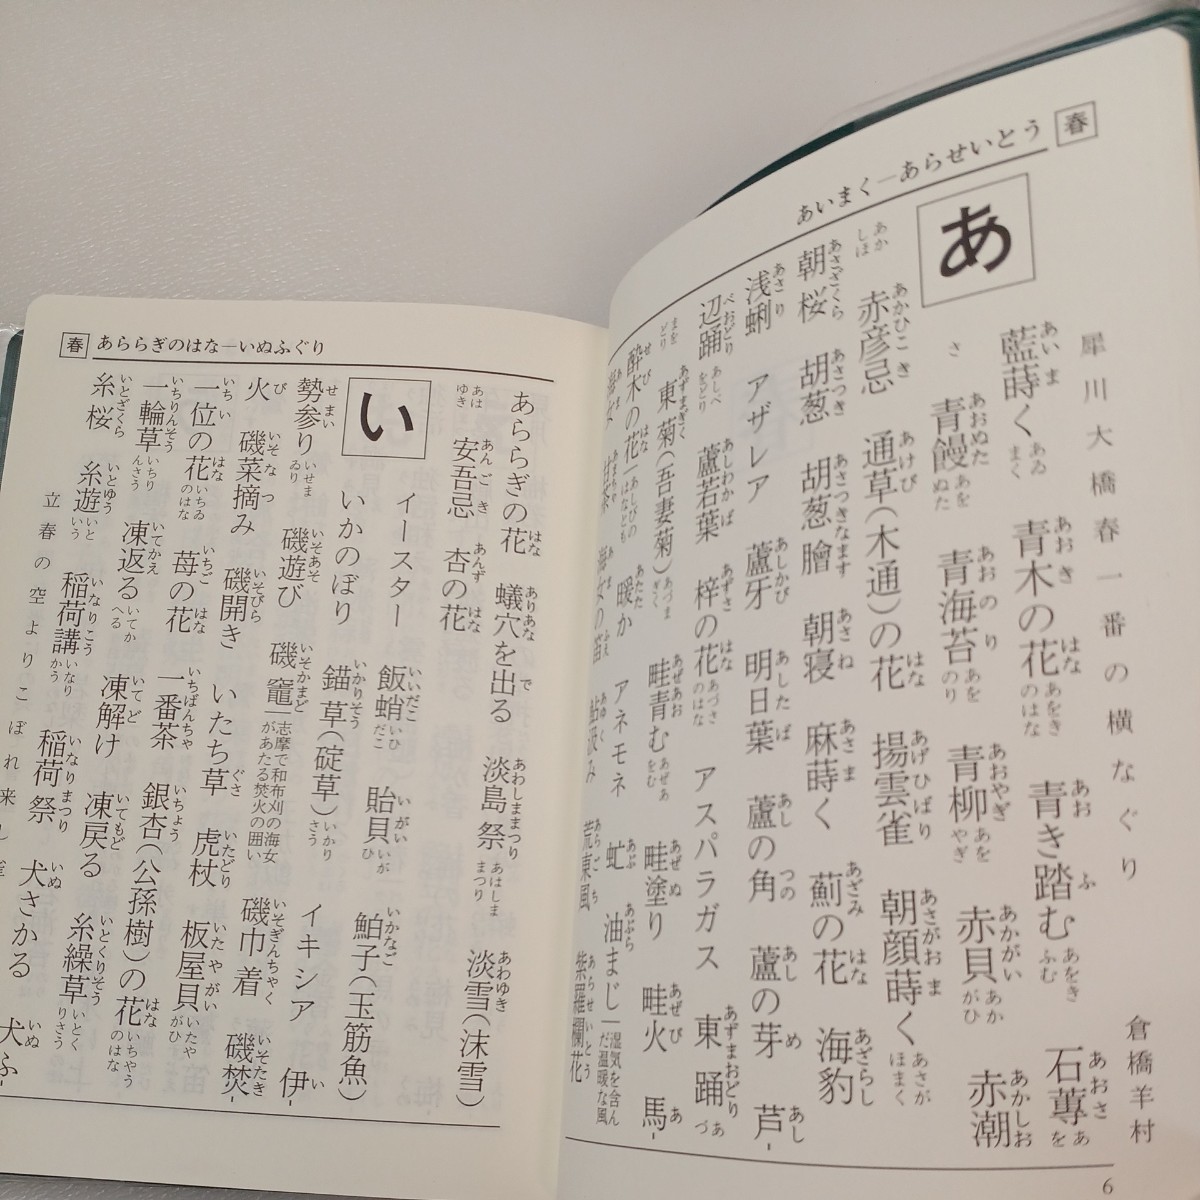 春 あいまく―あらせいとう
犀川大橋春一番の横なぐり 倉橋羊村
あ
藍蒔く 青木の花 青き踏む 石蓴
青饅 青海苔 青柳 赤貝 赤潮
赤彦忌 通草(木通)の花 揚雲雀 朝顔蒔く
朝桜 胡葱 胡葱膾 朝寝 麻蒔く 薊の花 海豹
浅蜊 アザレア 蘆牙 明日葉 蘆の角 蘆の芽 芦-
辺踊 蘆若葉 梓の花 アスパラガス 東踊
東菊(吾妻菊) 畦青む 畦塗り 畦火 馬-
酔木の花 暖か アネモネ 虻 油まじ 湿気を含んだ温暖な風
荒東風 紫羅欄花
6
春 あららぎのはな―いぬふぐり
あららぎの花 蟻穴を出る 淡島祭 淡雪(沫雪)
安吾忌 杏の花
い
イースター 飯蛸 貽貝 鮊子(玉筋魚)
いかのぼり 錨草(碇草) イキシア 伊-
勢参り 磯遊び 磯竈 志摩で和布刈の海女があたる焚火の囲い 磯巾着 磯焚-
火 磯菜摘み 磯開き いたち草 虎杖 板屋貝
一位の花 苺の花 一番茶 銀杏(公孫樹)の花
一輪草 凍返る 凍解け 凍戻る 糸繰草
糸桜 糸遊 稲荷講 稲荷祭 犬さかる 犬ふ-
立春の空よりこぼれ来し